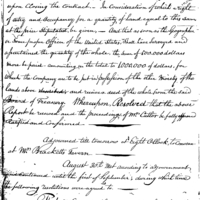 upon closing the contract. In consideration of which Right
of entry and occupancy for a quantity of land equal to this sum
at the price stipulated, be given. And that as soon as the Geographer
or some proper Officer of the United States, shall have surveyed and
ascertained the quantity of the whole, the sum of 500.000 dollars
more be paid amounting in the total to 1.000.000 of dollars, for
which the Company are to be put in possession of the other moiety of the
lands above and receive deed of the whole from the said
Board of Treasury. Whereupon Resolved That the above
Report be received and the proceedings of Mr Cutler be fully
ratified and Confirmed.
Adjourned till tomorrow at Eight o'Clock to Convene
at Mr Bracketts Tavern
August 30th Met according to adjournment,
the first of September, during which time
the following were agreed to